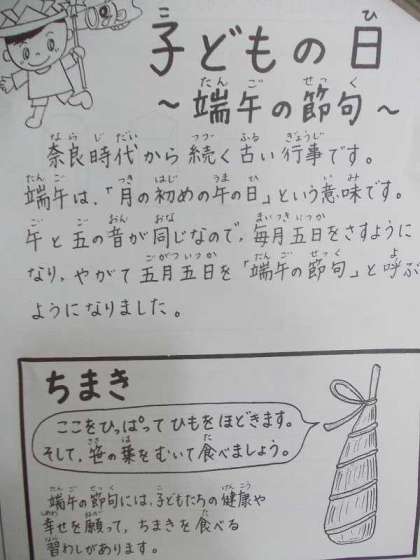 子どもの日
～端午の節句～
奈良時代から続く古い行事です。
端午は、「月の初めの午の日」という意味です。
午と五の音が同じなので、毎月五日をさすように
なり、やがて五月五日を「端午の節句」と呼ぶ
ようになりました。
ちまき
ここをひっぱってひもをほどきます。
そして、笹の葉をむいて食べましょう。
端午の節句には、子どもたちの健康や
幸せを願って、ちまきを食べる
習わしがあります。